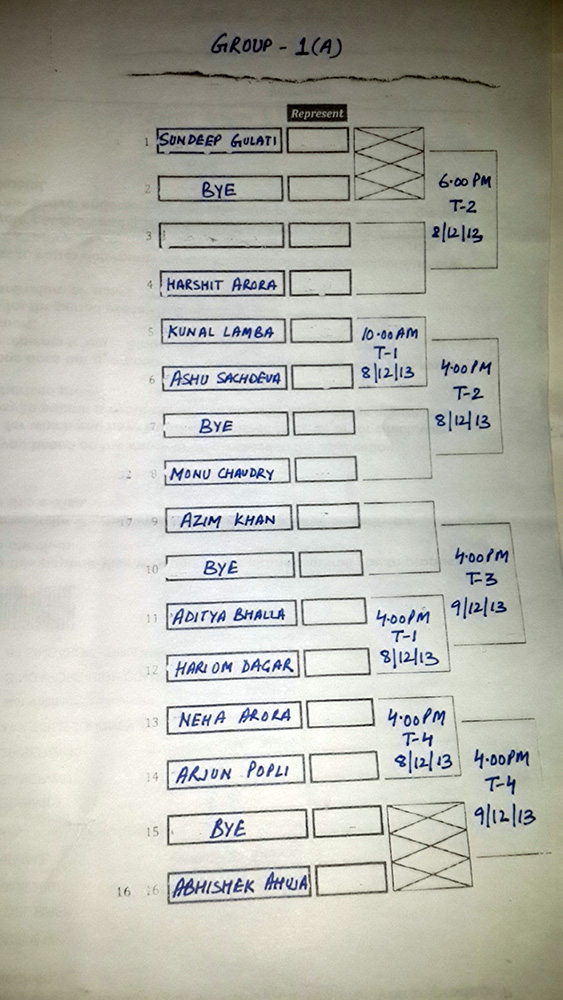 GROUP - 1(A)
Represent
1 SUNDEEP GULATI
2 BYE
6.00 PM
T-2
8/12/13
3
4 HARSHIT ARORA
5 KUNAL LAMBA
10.00 AM
T-1
8/12/13
6 ASHU SACHDEVA
4.00 PM
T-2
8/12/13
7 BYE
12 8 MONU CHAUDRY
17 9 AZIM KHAN
10 BYE
4.00 PM
T-3
9/12/13
11 ADITYA BHALLA
4.00 PM
T-1
8/12/13
12 HARI OM DAGAR
13 NEHA ARORA
4.00 PM
T-4
8/12/13
14 ARJUN POPLI
4.00 PM
T-4
9/12/13
15 BYE
16 16 ABHISHEK AHUJA